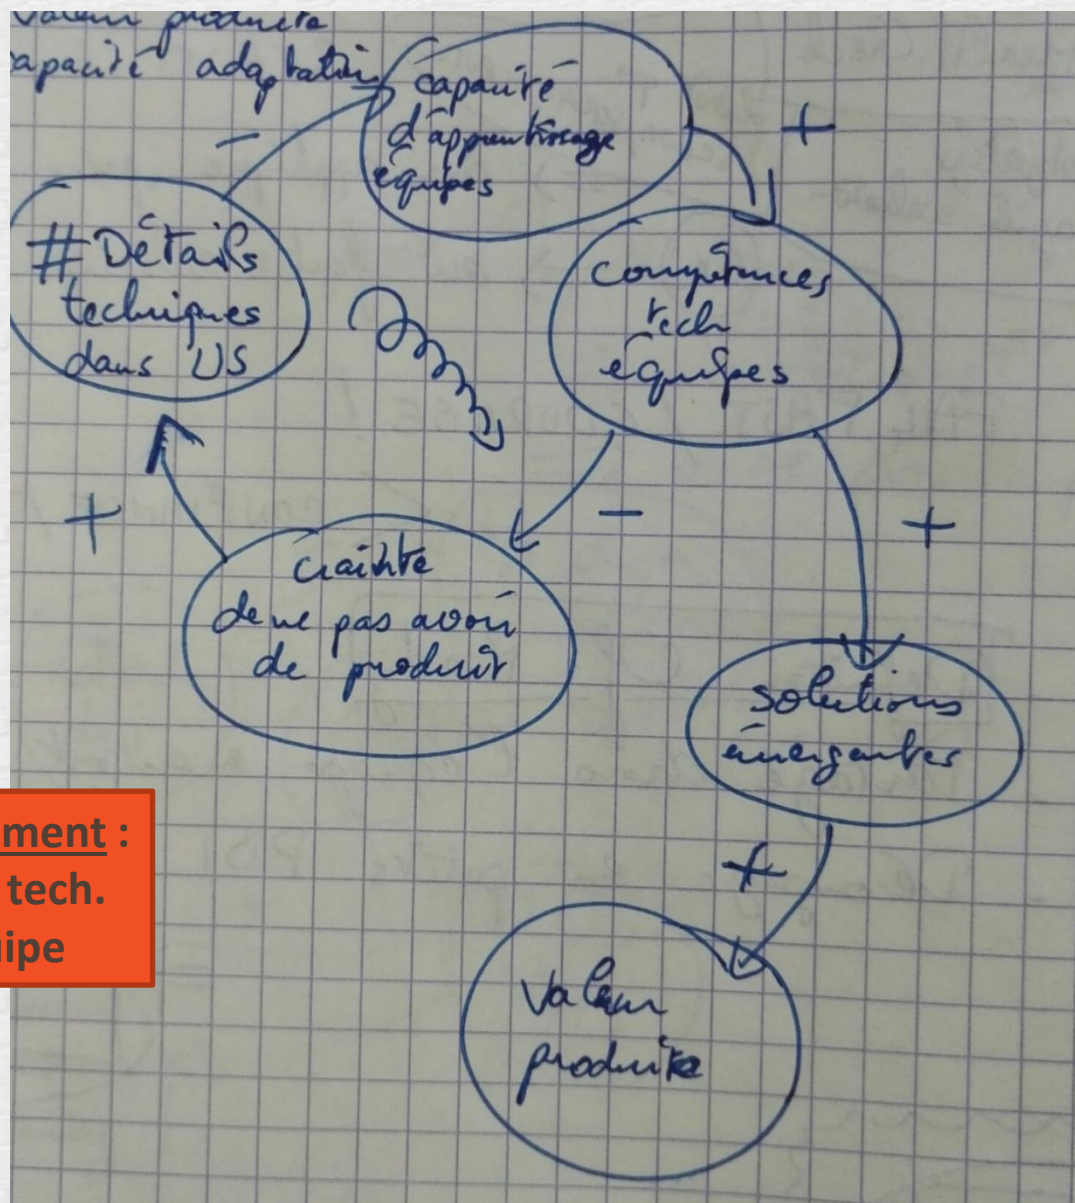 valeur produite
capacité adaptation
capacité
d'apprentissage
équipes
+
-
# Détails
techniques
dans US
compétences
tech
équipes
+
-
+
crainte
de ne pas avoir
de produit
solutions
émergentes
+
valeur
produite
ment :
tech.
ipe